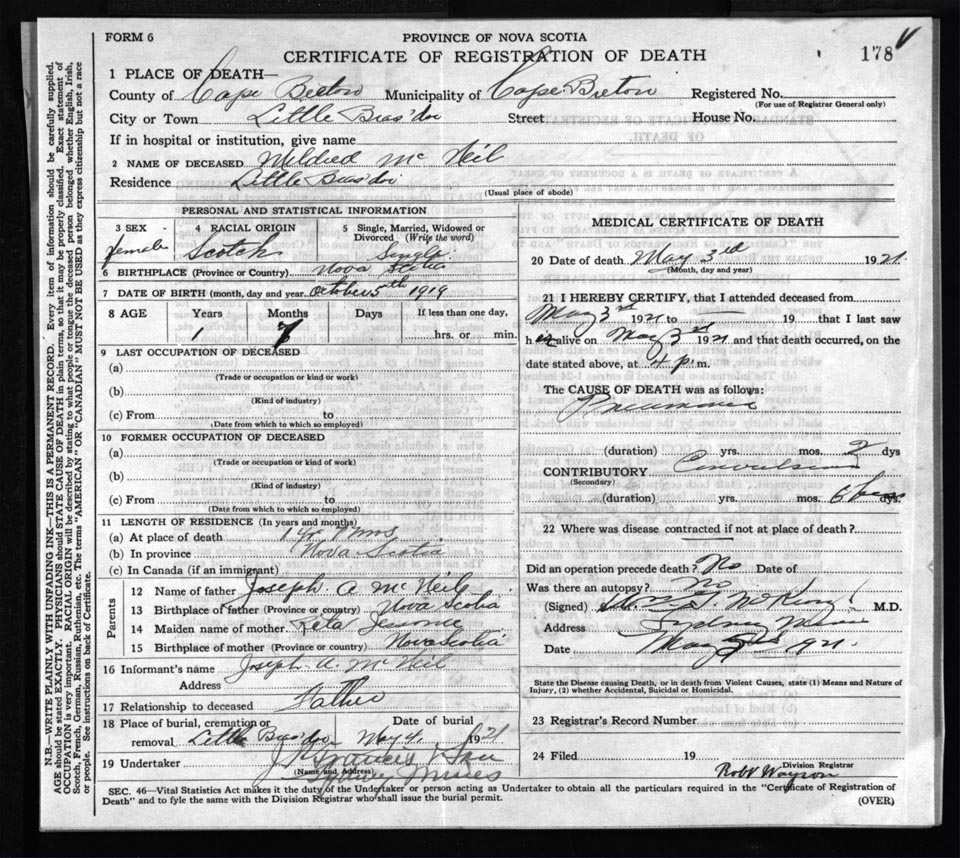 FORM 6
PROVINCE OF NOVA SCOTIA
CERTIFICATE OF REGISTRATION OF DEATH
178
1 PLACE OF DEATH—
County of Cape Breton Municipality of Cape Breton Registered No.
(For use of Registrar General only)
City or Town Little Bras'dor Street House No.
If in hospital or institution, give name
2 NAME OF DECEASED Mildred Mc Neil
Residence Little Bras'dor
(Usual place of abode)
PERSONAL AND STATISTICAL INFORMATION
3 SEX 4 RACIAL ORIGIN 5 Single, Married, Widowed or Divorced (Write the word)
female Scotch Single
6 BIRTHPLACE (Province or Country) Nova Scotia
7 DATE OF BIRTH (month, day and year) October 5th 1919
8 AGE Years Months Days If less than one day,
1 7 hrs. or min.
9 LAST OCCUPATION OF DECEASED
(a)
(Trade or occupation or kind or work)
(b)
(Kind of industry)
(c) From to
(Date from which to which so employed)
10 FORMER OCCUPATION OF DECEASED
(a)
(Trade or occupation or kind of work)
(b)
(Kind of industry)
(c) From to
(Date from which to which so employed)
11 LENGTH OF RESIDENCE (In years and months)
(a) At place of death 1 yr. 7 mos
(b) In province Nova Scotia
(c) In Canada (if an immigrant)
Parents
12 Name of father Joseph. A Mc Neil
13 Birthplace of father (Province or country) Nova Scotia
14 Maiden name of mother Rita Jessome
15 Birthplace of mother (Province or country) Nova Scotia
16 Informant's name Joseph A Mc Neil
Address
17 Relationship to deceased Father
18 Place of burial, cremation or removal Little Bras'dor Date of burial May 4. 1921
19 Undertaker J. Francis
(Name and Address) Sydney Mines
MEDICAL CERTIFICATE OF DEATH
20 Date of death May 3rd 1921
(Month, day and year)
21 I HEREBY CERTIFY, that I attended deceased from
May 3rd 1921 to 19 that I last saw
h alive on May 3rd 1921 and that death occurred, on the
date stated above, at 4 p.m.
The CAUSE OF DEATH was as follows:
Pneumonia
(duration) yrs. mos. 2 dys
CONTRIBUTORY Convulsions
(Secondary)
(duration) yrs. mos. 6 hrs dys.
22 Where was disease contracted if not at place of death?
Did an operation precede death? No Date of
Was there an autopsy? No
(Signed) M.D.
Address Sydney Mines
Date May 1921.
State the Disease causing Death, or in death from Violent Causes, state (1) Means and Nature of
Injury, (2) whether Accidental, Suicidal or Homicidal.
23 Registrar's Record Number
24 Filed 19
Division Registrar
Robt Wayson
SEC. 46—Vital Statistics Act makes it the duty of the Undertaker or person acting as Undertaker to obtain all the particulars required in the "Certificate of Registration of
Death" and to fyle the same with the Division Registrar who shall issue the burial permit.
(OVER)
N.B.—WRITE PLAINLY WITH UNFADING INK—THIS IS A PERMANENT RECORD. Every item of information should be carefully supplied.
AGE should be stated EXACTLY. PHYSICIANS should STATE CAUSE OF DEATH in plain terms, so that it may be properly classified. Exact statement of
OCCUPATION is very important. RACIAL ORIGIN will be described by stating to what people or tongue the deceased person belonged, whether English, Irish,
Scotch, French, German, Russian, Ruthenian, etc. The terms "AMERICAN" OR "CANADIAN" MUST NOT BE USED as they express citizenship but not a race
or people. See instructions on back of Certificate.